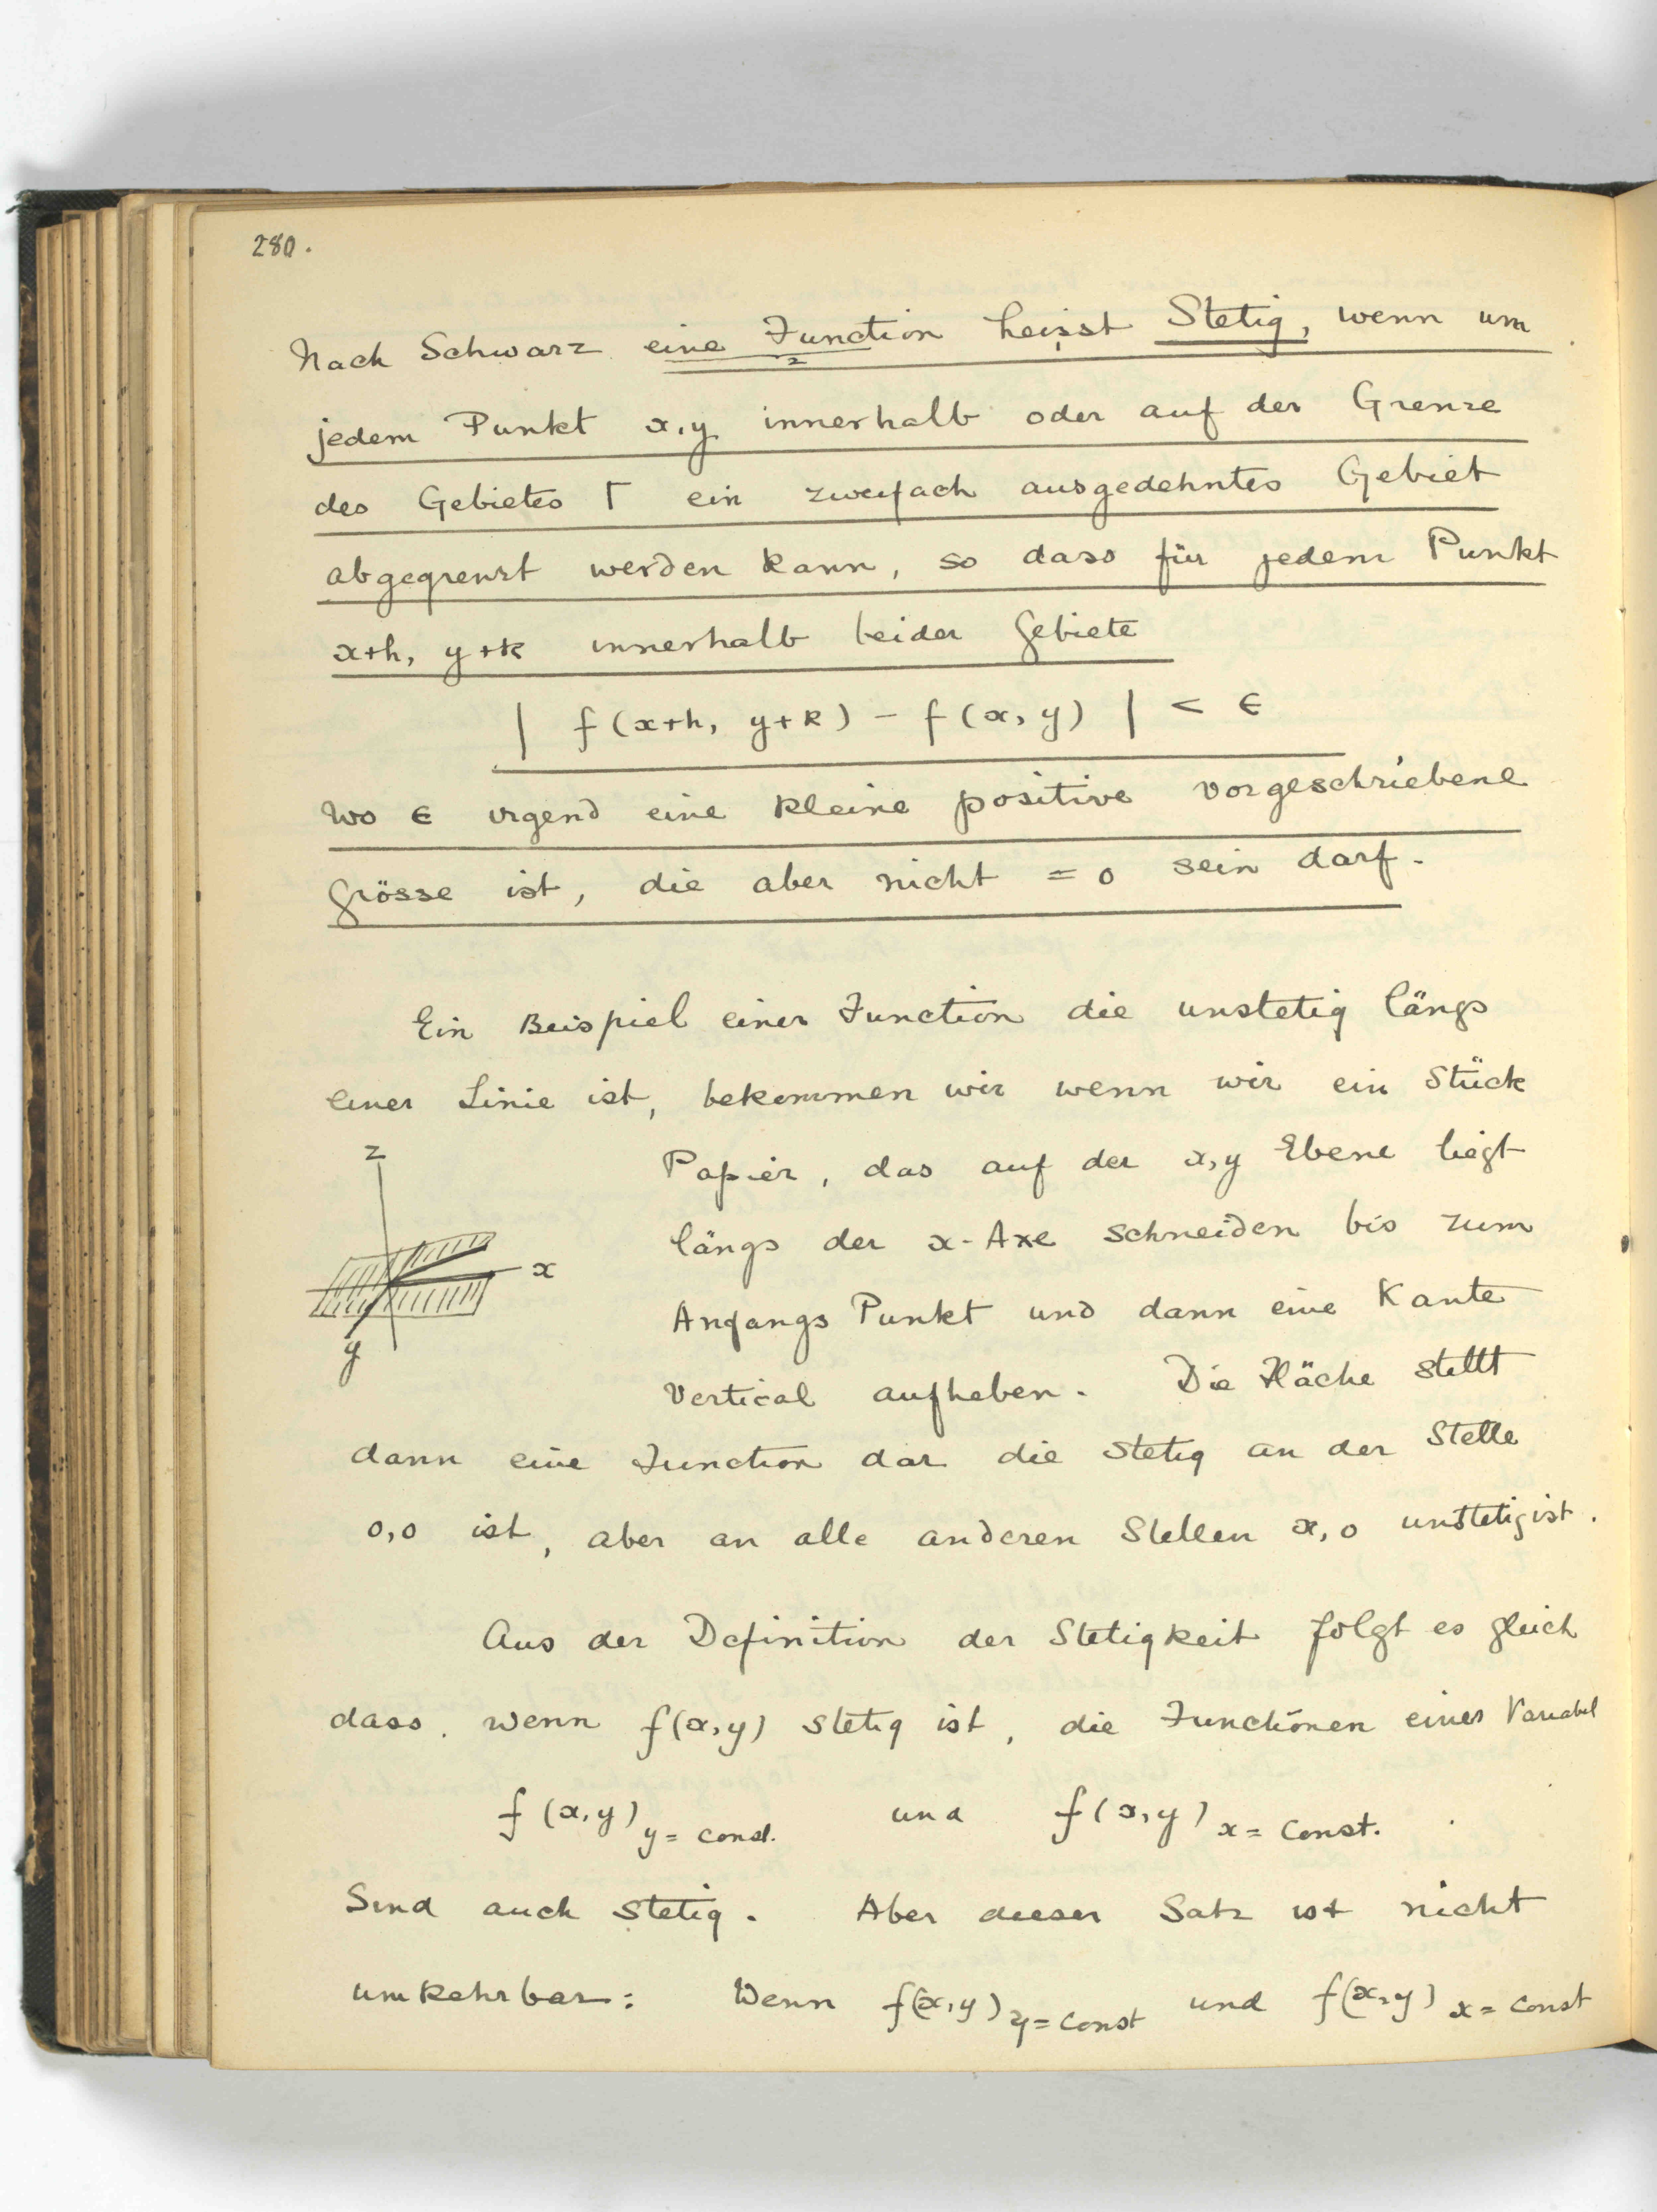 280.
Nach Schwarz eine Function heisst Stetig, wenn um
jedem Punkt x,y innerhalb oder auf der Grenze
des Gebietes Γ ein zweifach ausgedehntes Gebiet
abgegrenzt werden kann, so dass für jedem Punkt
x+h, y+k innerhalb beider Gebiete
| f(x+h, y+k) - f(x,y) | < ϵ
wo ϵ irgend eine kleine positive vorgeschriebene
Grösse ist, die aber nicht = 0 sein darf.
Ein Beispiel einer Function die unstetig längs
einer Linie ist, bekommen wir wenn wir ein Stück
Papier, das auf der x,y Ebene liegt
längs der x-Axe schneiden bis zum
Anfangs Punkt und dann eine Kante
Vertical aufheben. Die Fläche stellt
z
x
y
dann eine Function dar die stetig an der Stelle
0,0 ist, aber an alle anderen Stellen x,0 unstetig ist.
Aus der Definition der Stetigkeit folgt es gleich
dass, wenn f(x,y) stetig ist, die Functionen einer Variabel
f(x,y) y = const. und f(x,y) x = Const.
Sind auch stetig. Aber dieser Satz ist nicht
umkehrbar: Wenn f(x,y) y = const und f(x,y) x = const